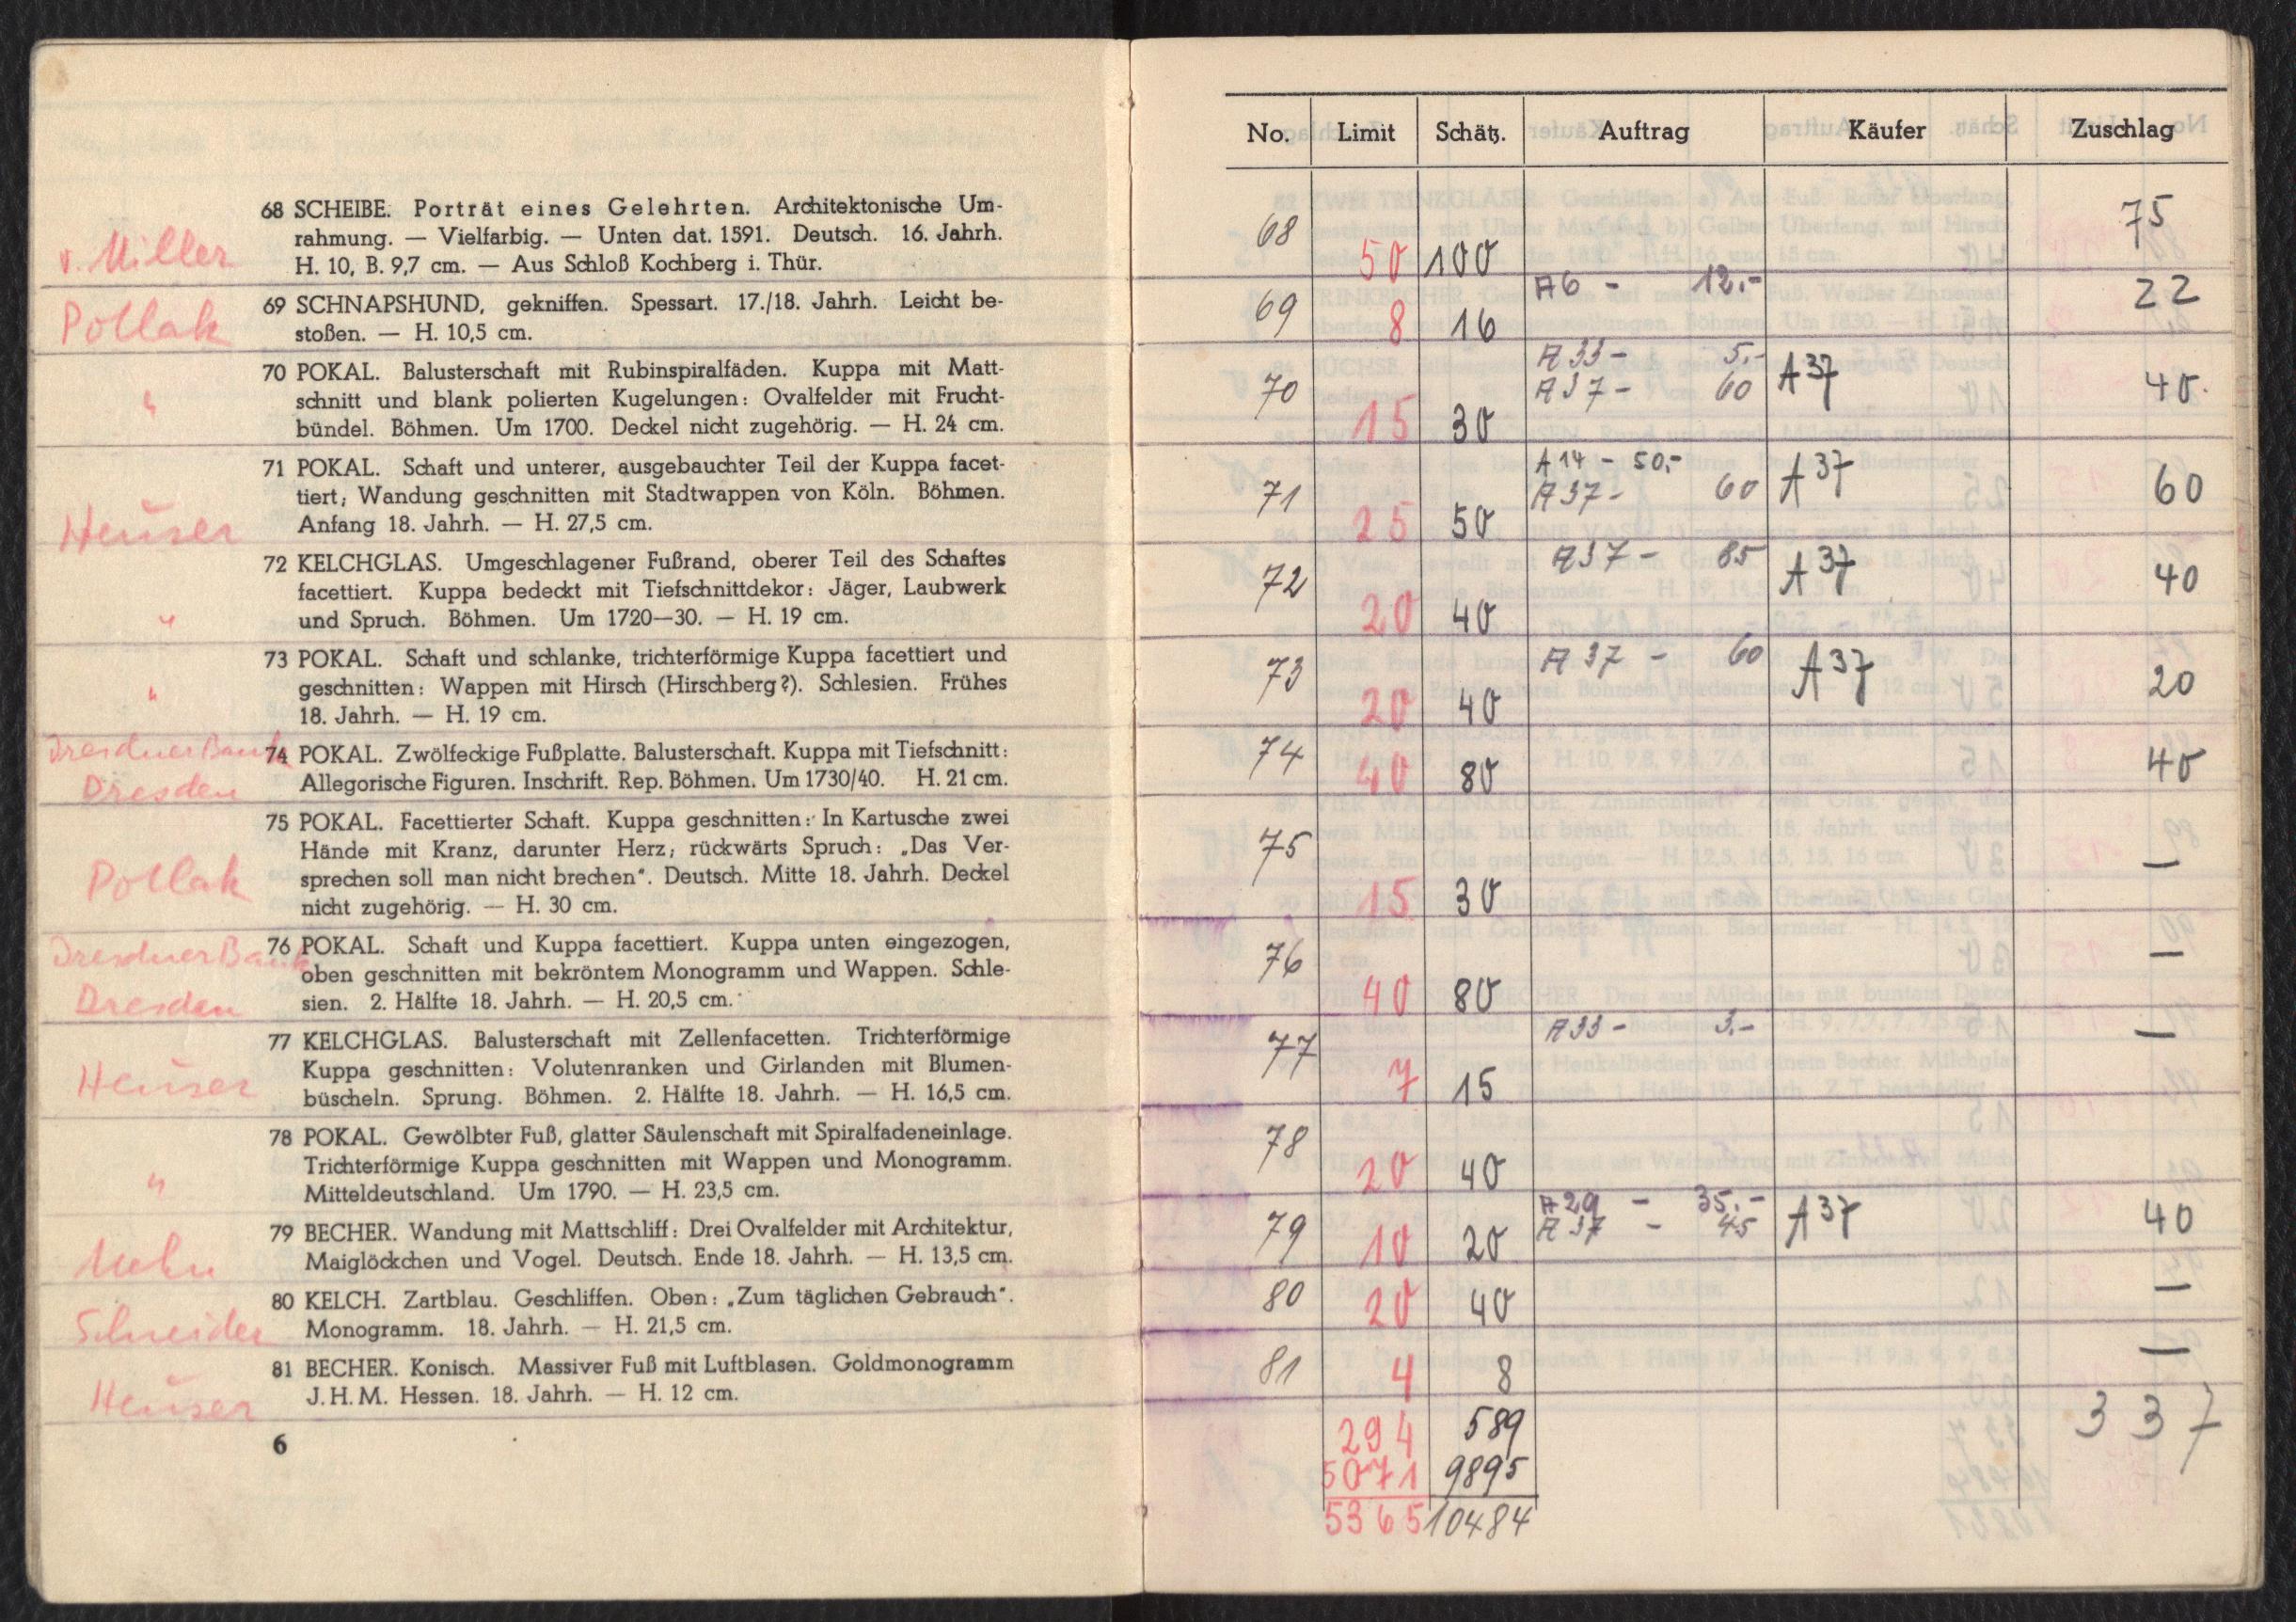 68 SCHEIBE. Porträt eines Gelehrten. Architektonische Um-
rahmung. — Vielfarbig. — Unten dat. 1591. Deutsch. 16. Jahrh.
v. Miller
H. 10, B. 9,7 cm. — Aus Schloß Kochberg i. Thür.
69 SCHNAPSHUND, gekniffen. Spessart. 17./18. Jahrh. Leicht be-
Pollak
stoßen. — H. 10,5 cm.
70 POKAL. Balusterschaft mit Rubinspiralfäden. Kuppa mit Matt-
" schnitt und blank polierten Kugelungen: Ovalfelder mit Frucht-
bündel. Böhmen. Um 1700. Deckel nicht zugehörig. — H. 24 cm.
71 POKAL. Schaft und unterer, ausgebauchter Teil der Kuppa facet-
tiert; Wandung geschnitten mit Stadtwappen von Köln. Böhmen.
Heuser
Anfang 18. Jahrh. — H. 27,5 cm.
72 KELCHGLAS. Umgeschlagener Fußrand, oberer Teil des Schaftes
facettiert. Kuppa bedeckt mit Tiefschnittdekor: Jäger, Laubwerk
" und Spruch. Böhmen. Um 1720—30. — H. 19 cm.
73 POKAL. Schaft und schlanke, trichterförmige Kuppa facettiert und
" geschnitten: Wappen mit Hirsch (Hirschberg?). Schlesien. Frühes
18. Jahrh. — H. 19 cm.
Dresdner Bank
74 POKAL. Zwölfeckige Fußplatte. Balusterschaft. Kuppa mit Tiefschnitt:
Dresden
Allegorische Figuren. Inschrift. Rep. Böhmen. Um 1730/40. H. 21 cm.
75 POKAL. Facettierter Schaft. Kuppa geschnitten: In Kartusche zwei
Hände mit Kranz, darunter Herz; rückwärts Spruch: „Das Ver-
Pollak
sprechen soll man nicht brechen“. Deutsch. Mitte 18. Jahrh. Deckel
nicht zugehörig. — H. 30 cm.
Dresdner Bank
76 POKAL. Schaft und Kuppa facettiert. Kuppa unten eingezogen,
oben geschnitten mit bekröntem Monogramm und Wappen. Schle-
Dresden
sien. 2. Hälfte 18. Jahrh. — H. 20,5 cm.
77 KELCHGLAS. Balusterschaft mit Zellenfacetten. Trichterförmige
Kuppa geschnitten: Volutenranken und Girlanden mit Blumen-
Heuser
büscheln. Sprung. Böhmen. 2. Hälfte 18. Jahrh. — H. 16,5 cm.
78 POKAL. Gewölbter Fuß, glatter Säulenschaft mit Spiralfadeneinlage.
Trichterförmige Kuppa geschnitten mit Wappen und Monogramm.
" Mitteldeutschland. Um 1790. — H. 23,5 cm.
79 BECHER. Wandung mit Mattschliff: Drei Ovalfelder mit Architektur,
Maiglöckchen und Vogel. Deutsch. Ende 18. Jahrh. — H. 13,5 cm.
80 KELCH. Zartblau. Geschliffen. Oben: „Zum täglichen Gebrauch“.
Schneider
Monogramm. 18. Jahrh. — H. 21,5 cm.
81 BECHER. Konisch. Massiver Fuß mit Luftblasen. Goldmonogramm
Heuser
J. H. M. Hessen. 18. Jahrh. — H. 12 cm.
6
No. Limit Schätz. Auftrag Käufer Zuschlag
68 50 100 75
69 8 16 A6 - 12.- 22
A33 - 5.-
70 15 30 A37 - 60 A37 40.
A14 - 50.-
71 25 50 A37 - 60 A37 60
72 20 40 A37 - 85 A37 40
73 20 40 A37 - 60 A37 20
74 40 80 40
75 15 30 —
76 40 80 —
77 7 15 A33 - 3.- —
78 20 40
A29 - 35.-
79 10 20 A37 - 45 A37 40
80 20 40 —
81 4 8 —
294 589 337
5071 9895
5365 10484